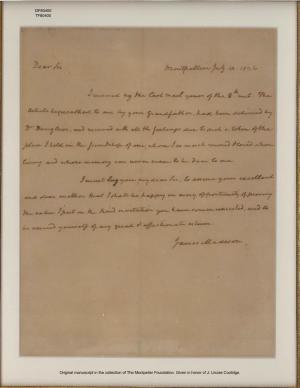 DP80400
TF80400
Dear Sir Montpellier July 1826
I received by the last mail yours of the 8th inst. The
article bequeathed to me by your Grandfather, had been delivered by
Mr Dunglison, and received with all the feelings due to such a token of the
place I held in the friendship of one, whom I so much revered & loved when
living and whose memory can never cease to be dear to me.
I must beg you my dear Sir, to assure your excellent
and dear mother that I shall be happy in every opportunity of proving
the value I put on the kind you have communicated, and to
be assured yourself of my great & affectionate esteem
James Madison
Original manuscript in the collection of The Montpelier Foundation. Given in honor of J. Linzee Coolidge.